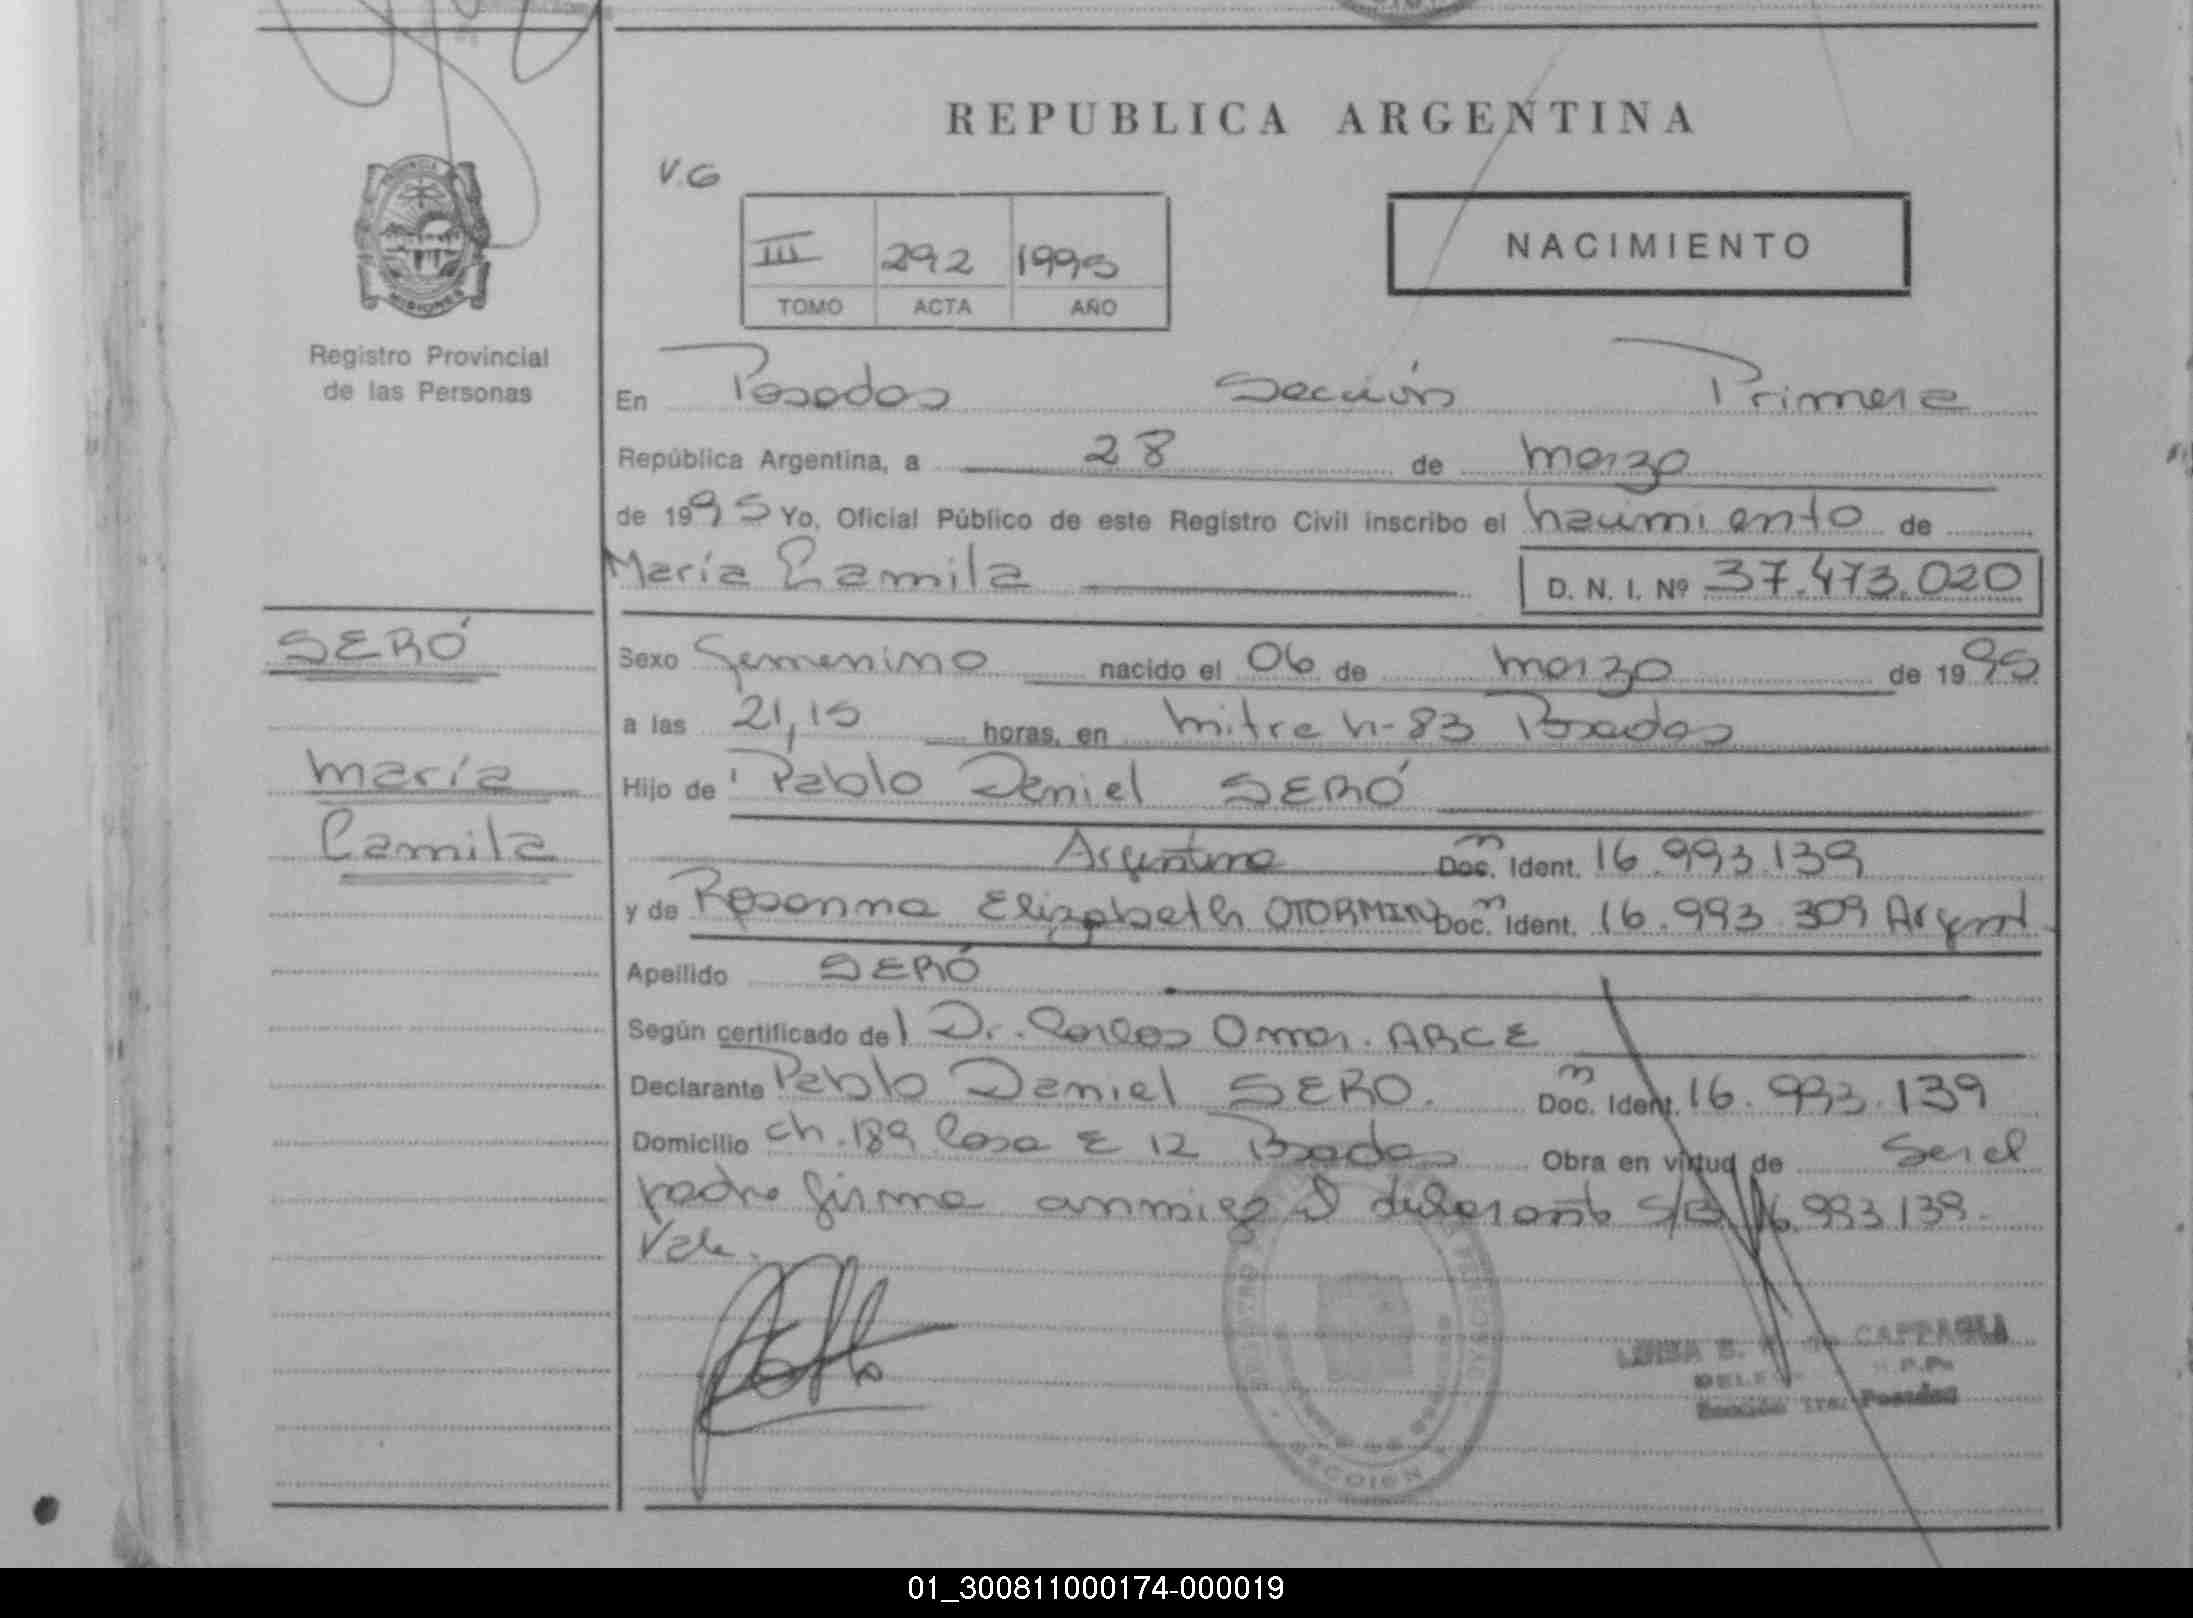 REPUBLICA ARGENTINA
V.G
III 292 1995
TOMO ACTA AÑO
NACIMIENTO
PROVINCIA
MISIONES
Registro Provincial
de las Personas
En Posadas Sección Primera
República Argentina, a 28 de marzo
de 1995 Yo, Oficial Público de este Registro Civil inscribo el nacimiento de
María Camila D. N. I. Nº 37.473.020
SERÓ
María
Camila
Sexo femenino nacido el 06 de marzo de 1995
a las 21,15 horas, en mitre n- 83 Posadas
Hijo de Pablo Daniel SERÓ
Argentino Doc. Ident. 16.993.139
y de Rosanna Elizabeth OTORMIN Doc. Ident. 16.993 309 Argent.
Apellido SERÓ
Según certificado del Dr. Carlos Omar. ARCE
Declarante Pablo Daniel SERO. Doc. Ident. 16.993.139
Domicilio ch. 189 Casa E 12 Posadas Obra en virtud de Ser el
padre firma conmigo el declarante S/B 16.993.139.
Vale.
CAPPAGLI
Sección 1ra. Posadas
01_300811000174-000019